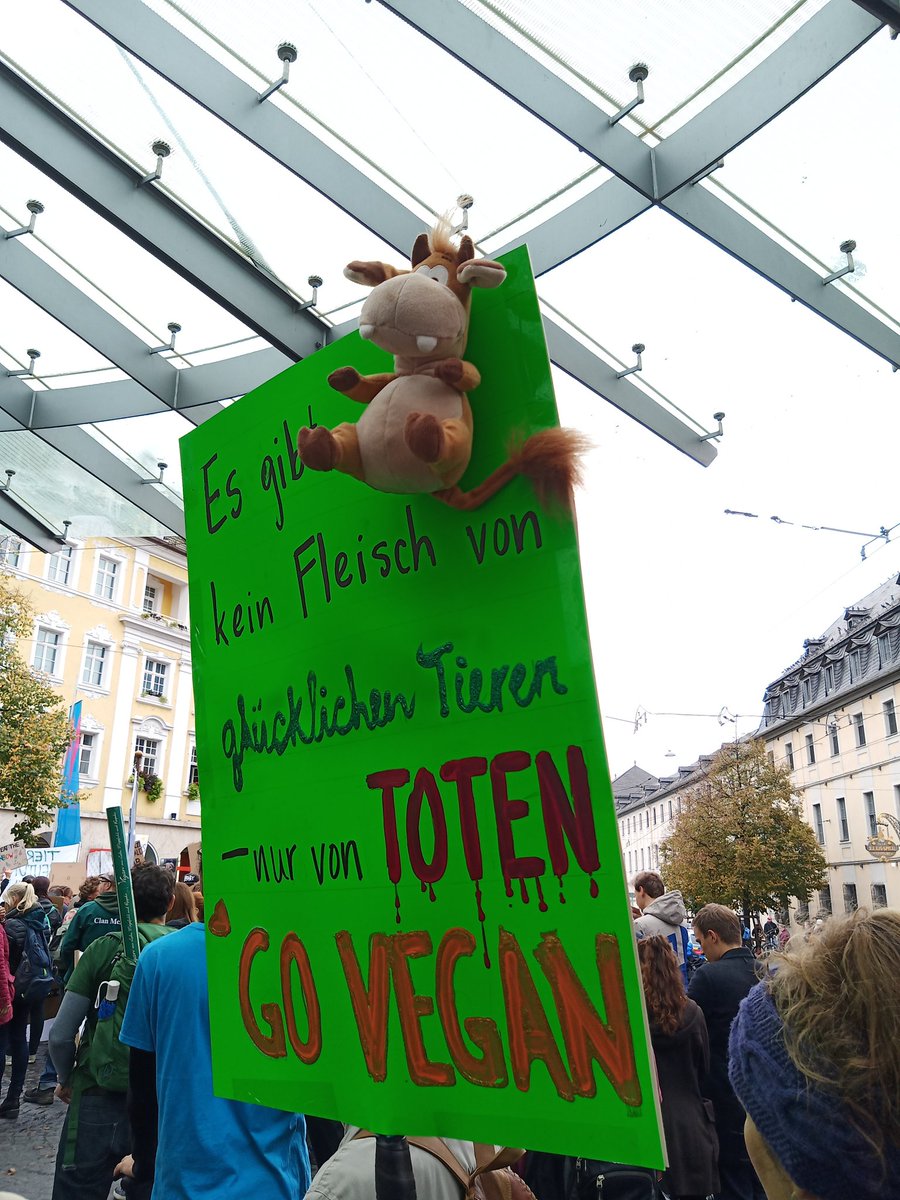 Es gibt
kein Fleisch von
glücklichen Tieren
– nur von TOTEN
GO VEGAN
TIER
Clan Me